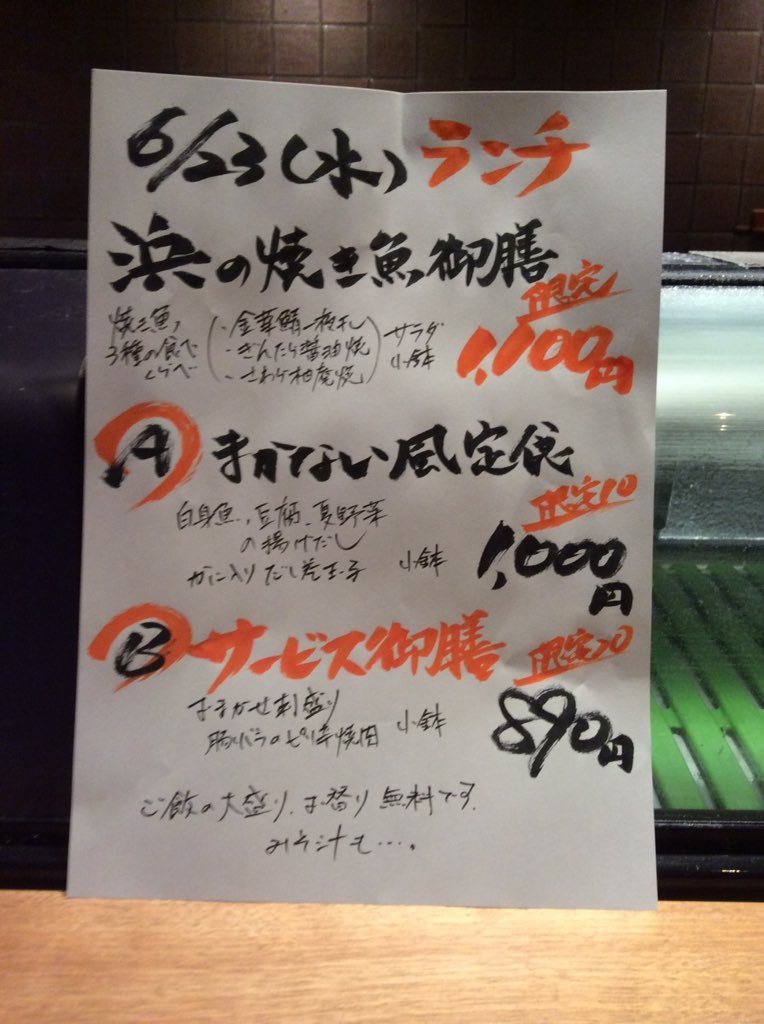 6/23(水)ランチ
浜の焼き魚御膳
限定
焼き魚、
3種の食べ
くらべ
・金華鯖一枚干し
・ぎんだら醤油焼
・さわら柚庵焼
サラダ
小鉢
1,100円
A まかない風定食
限定10
白身魚、豆腐、夏野菜
の揚げだし
かに入りだし巻玉子 小鉢
1,000円
B サービス御膳
限定20
おまかせ刺盛り
豚バラのピリ辛焼肉
小鉢
890円
ご飯の大盛り、お替り無料です。
みそ汁も…。